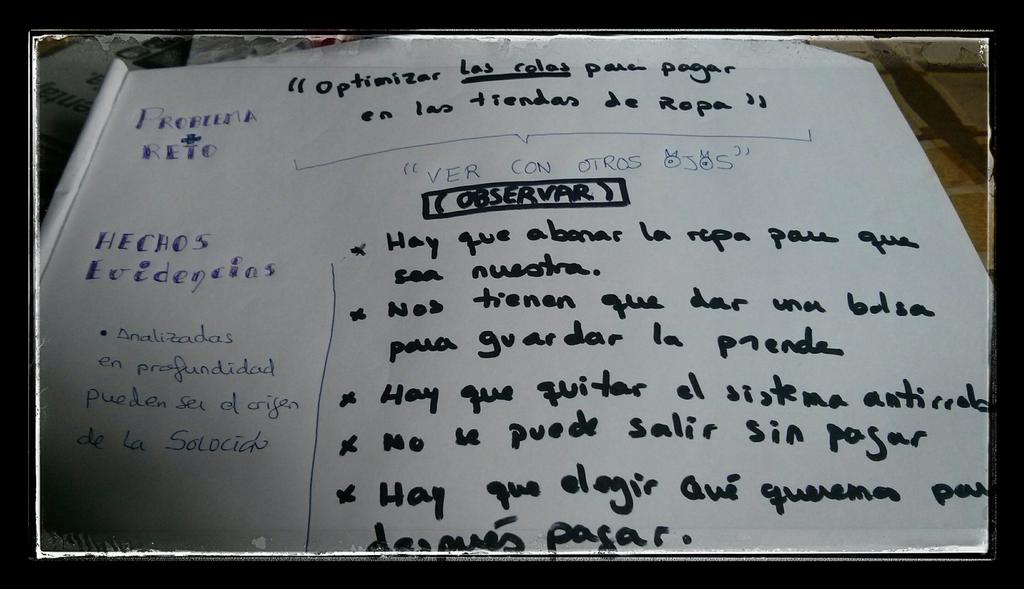 "Optimizar las colas para pagar
en las tiendas de Ropa"
PROBLEMA
+
RETO
"VER CON OTROS OJOS"
(OBSERVAR)
HECHOS
Evidencias
• Analizadas
en profundidad
pueden ser el origen
de la SOLOCIÓN
* Hay que abonar la ropa para que
sea nuestra.
* Nos tienen que dar una bolsa
para guardar la prenda
* Hay que quitar el sistema antirrobo
* No se puede salir sin pagar
* Hay que elegir qué queremos para
después pagar.